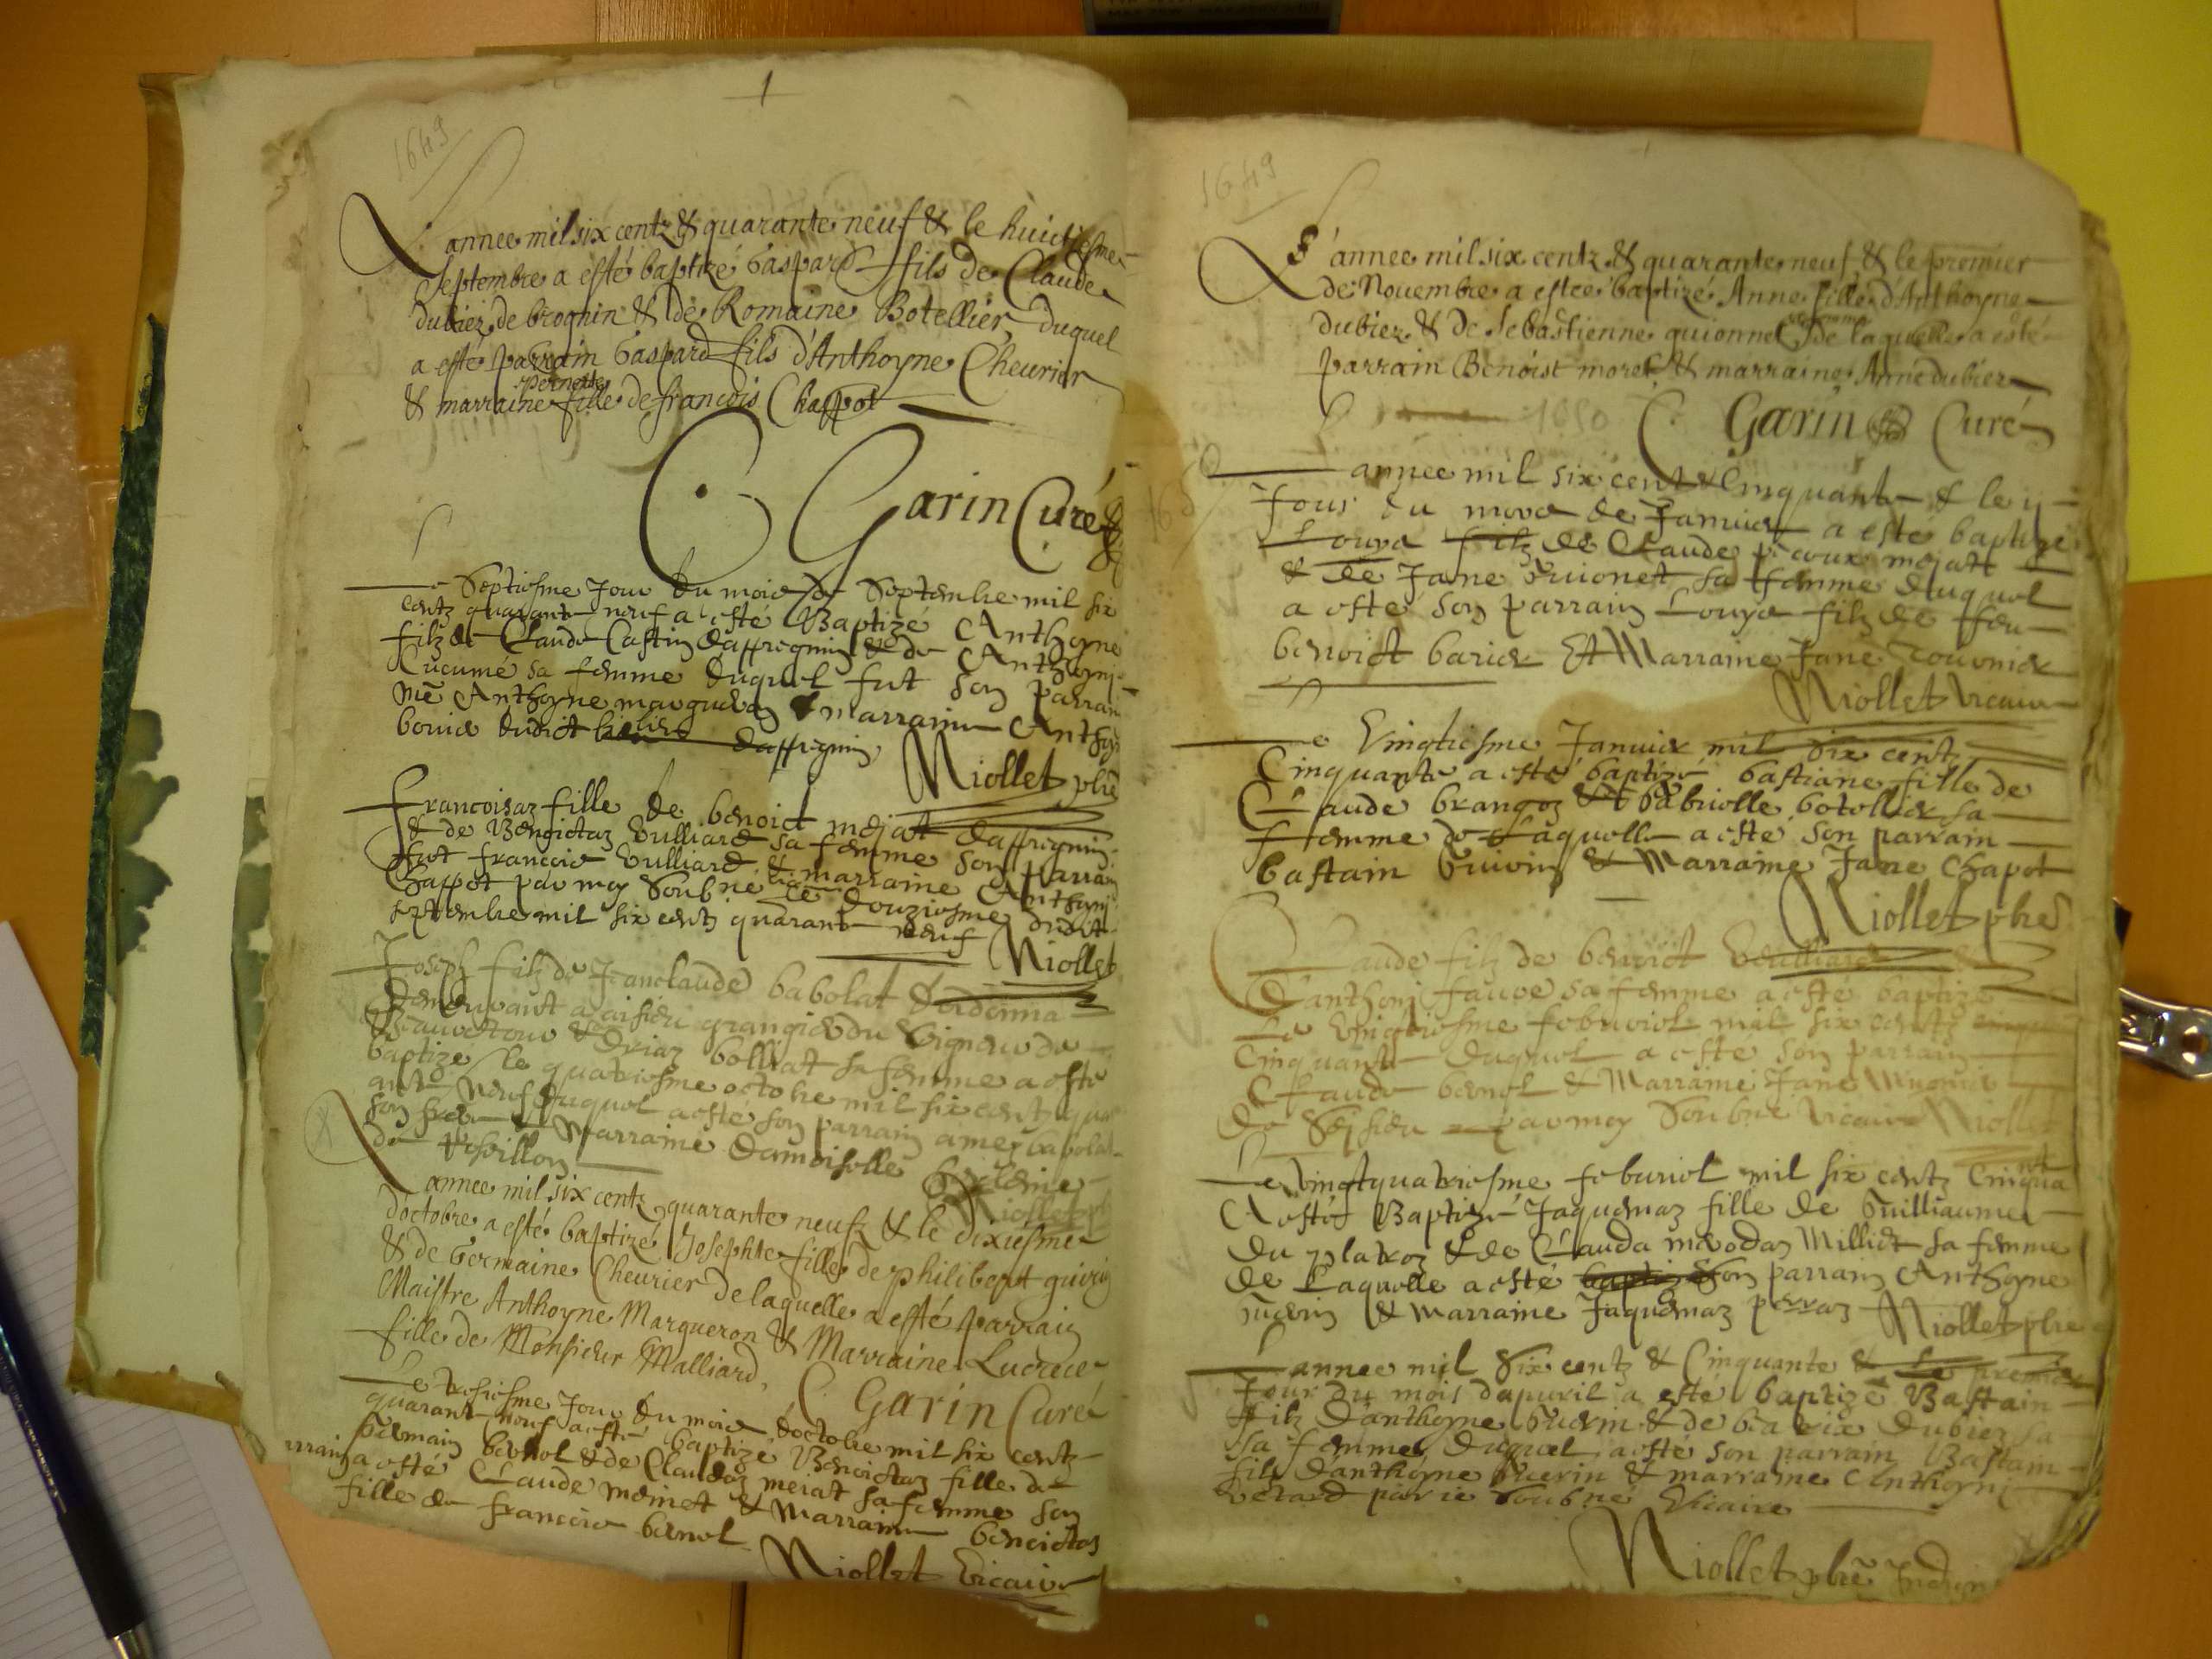 1
1649
L annee mil six centz & quarante neuf & le huictiesme
Septembre a esté baptizé Gaspard fils de Claude
dubiez de brognin & de Romaine Botellier, duquel
a esté parrain Gaspard fils d'Anthoyne Cheurier
pernette
& marraine fille de francois Chappot
C Garin Curé
Le Septiesme Jour du mois de Septembre mil six
centz quarante neuf a esté Baptizé Anthoyne
filz de Claude Castin daffregnin & de Anthoyni
Cucumé sa femme duquel fut son parrain
me Anthoyne margueron & marraine Anthoy
daffregnin
Niollet pbre
Francoisaz fille de benoict mejat daffregnin
& de Benoictaz Vulliard sa femme son parrain
fut francois Vulliard & marraine Anthoyni
Chappot par moy Soubne le douziesme dudit
septembre mil six centz quarante neuf Niollet
Joseph filz de Janclaude babolat
demeurant a grangier du Seigneur de
bolliat sa femme a esté
baptize le quatriesme octobre mil six centz quar
ante neuf duquel a esté son parrain amey babolat
son frere & Marraine damoiselle
de
Niollet
L annee mil six centz quarante neufz & le dixiesme
d'octobre a esté baptizé Josephte fille de philibert guivin
& de Germaine Cheurier de laquelle a esté parrain
Maistre Anthoyne Margueron & Marraine Lucrece
fille de Monsieur Malliard,
C Garin Curé
Le Jour du mois doctobre mil six centz
quarante neuf a esté baptizé Benoictaz fille de
Germain bernol & de Claudaz mejat sa femme son
rrain a esté Claude moinet & Marraine benoictaz
fille de francois bernol
Niollet Vicaire
1649
L'annee mil six centz & quarante neuf & le premier
de Nouembre a estee baptizé Anne fille d'Anthoyne
sa femme
dubiez & de Sebastienne guionnet de laquelle a esté
parrain Benoist moret & marraine Anne dubiez
1650
C Garin Curé
L annee mil six cent & Cinquante & le
Jour du mois de Januier a esté baptizé
Louys filz de Claude mejatt
& de Jane Guionet sa femme duquel
a esté son parrain Louys filz de ffeu
benoict barier Et Marraine Jane Tournier
Niollet Vicaire
Le Vingtiesme Januier mil Six centz
Cinquante a esté baptizé bastiane fille de
Claude brangoz & Gabrielle botollier sa
femme de Laquelle a esté son parrain
bastain Guivin & Marraine Jane Chapot
Niollet pbre
Claude filz de benoict Veulliard
& danthoni faure sa femme a esté baptizé
Le Vingtiesme febvrier mil six centz
Cinquante duquel a esté son parrain
Claude bernol & Marraine Jane Mugnier
de Seisieu par moy Soubne Vicaire Niollet
Le Vingtquatriesme feburier mil six centz Cinqua
nt
A esté Baptizé Jaquemaz fille de Guilliaume
du platroz & de Clauda Milliet sa femme
de Laquelle a esté baptizé son parrain Anthoyne
& Marraine Jaquemaz perraz Niollet pbre
L annee mil Six centz & Cinquante & Le premier
Jour du mois dapuril a esté baptizé Bastain
filz danthoyne Guerin & de dubiez sa
femme duquel a esté son parrain Bastain
filz danthoyne Guerin & marraine Anthoyni
par ie Soubne Vicaire
Niollet pbre Indigne